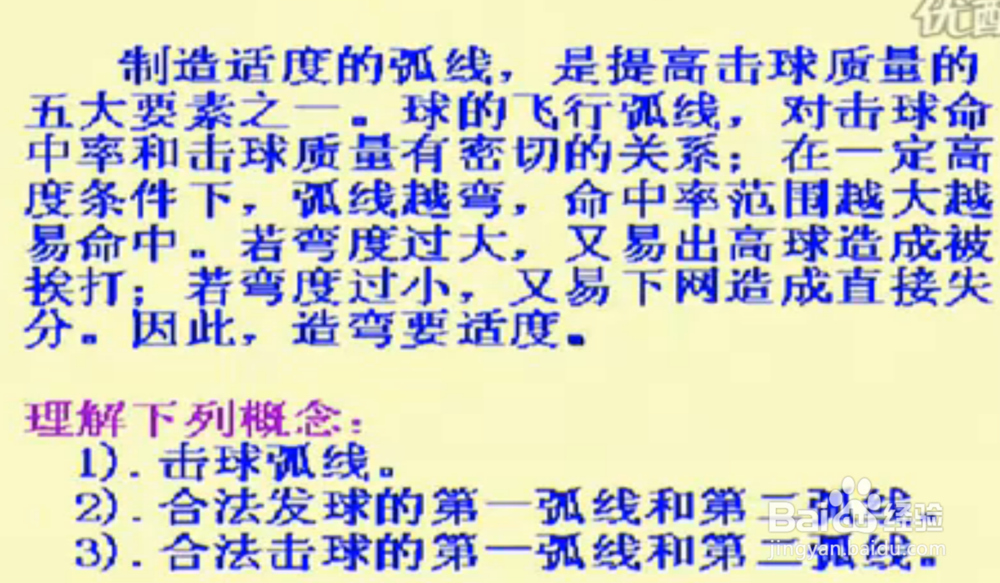 优酷
制造适度的弧线，是提高击球质量的
五大要素之一。球的飞行弧线，对击球命
中率和击球质量有密切的关系；在一定高
度条件下，弧线越弯，命中率范围越大越
易命中。若弯度过大，又易出高球造成被
挨打；若弯度过小，又易下网造成直接失
分。因此，造弯要适度。
理解下列概念：
1）.击球弧线。
2）.合法发球的第一弧线和第二弧线。
3）.合法击球的第一弧线和第二弧线。
Baidu经验
jingyan.baidu.com